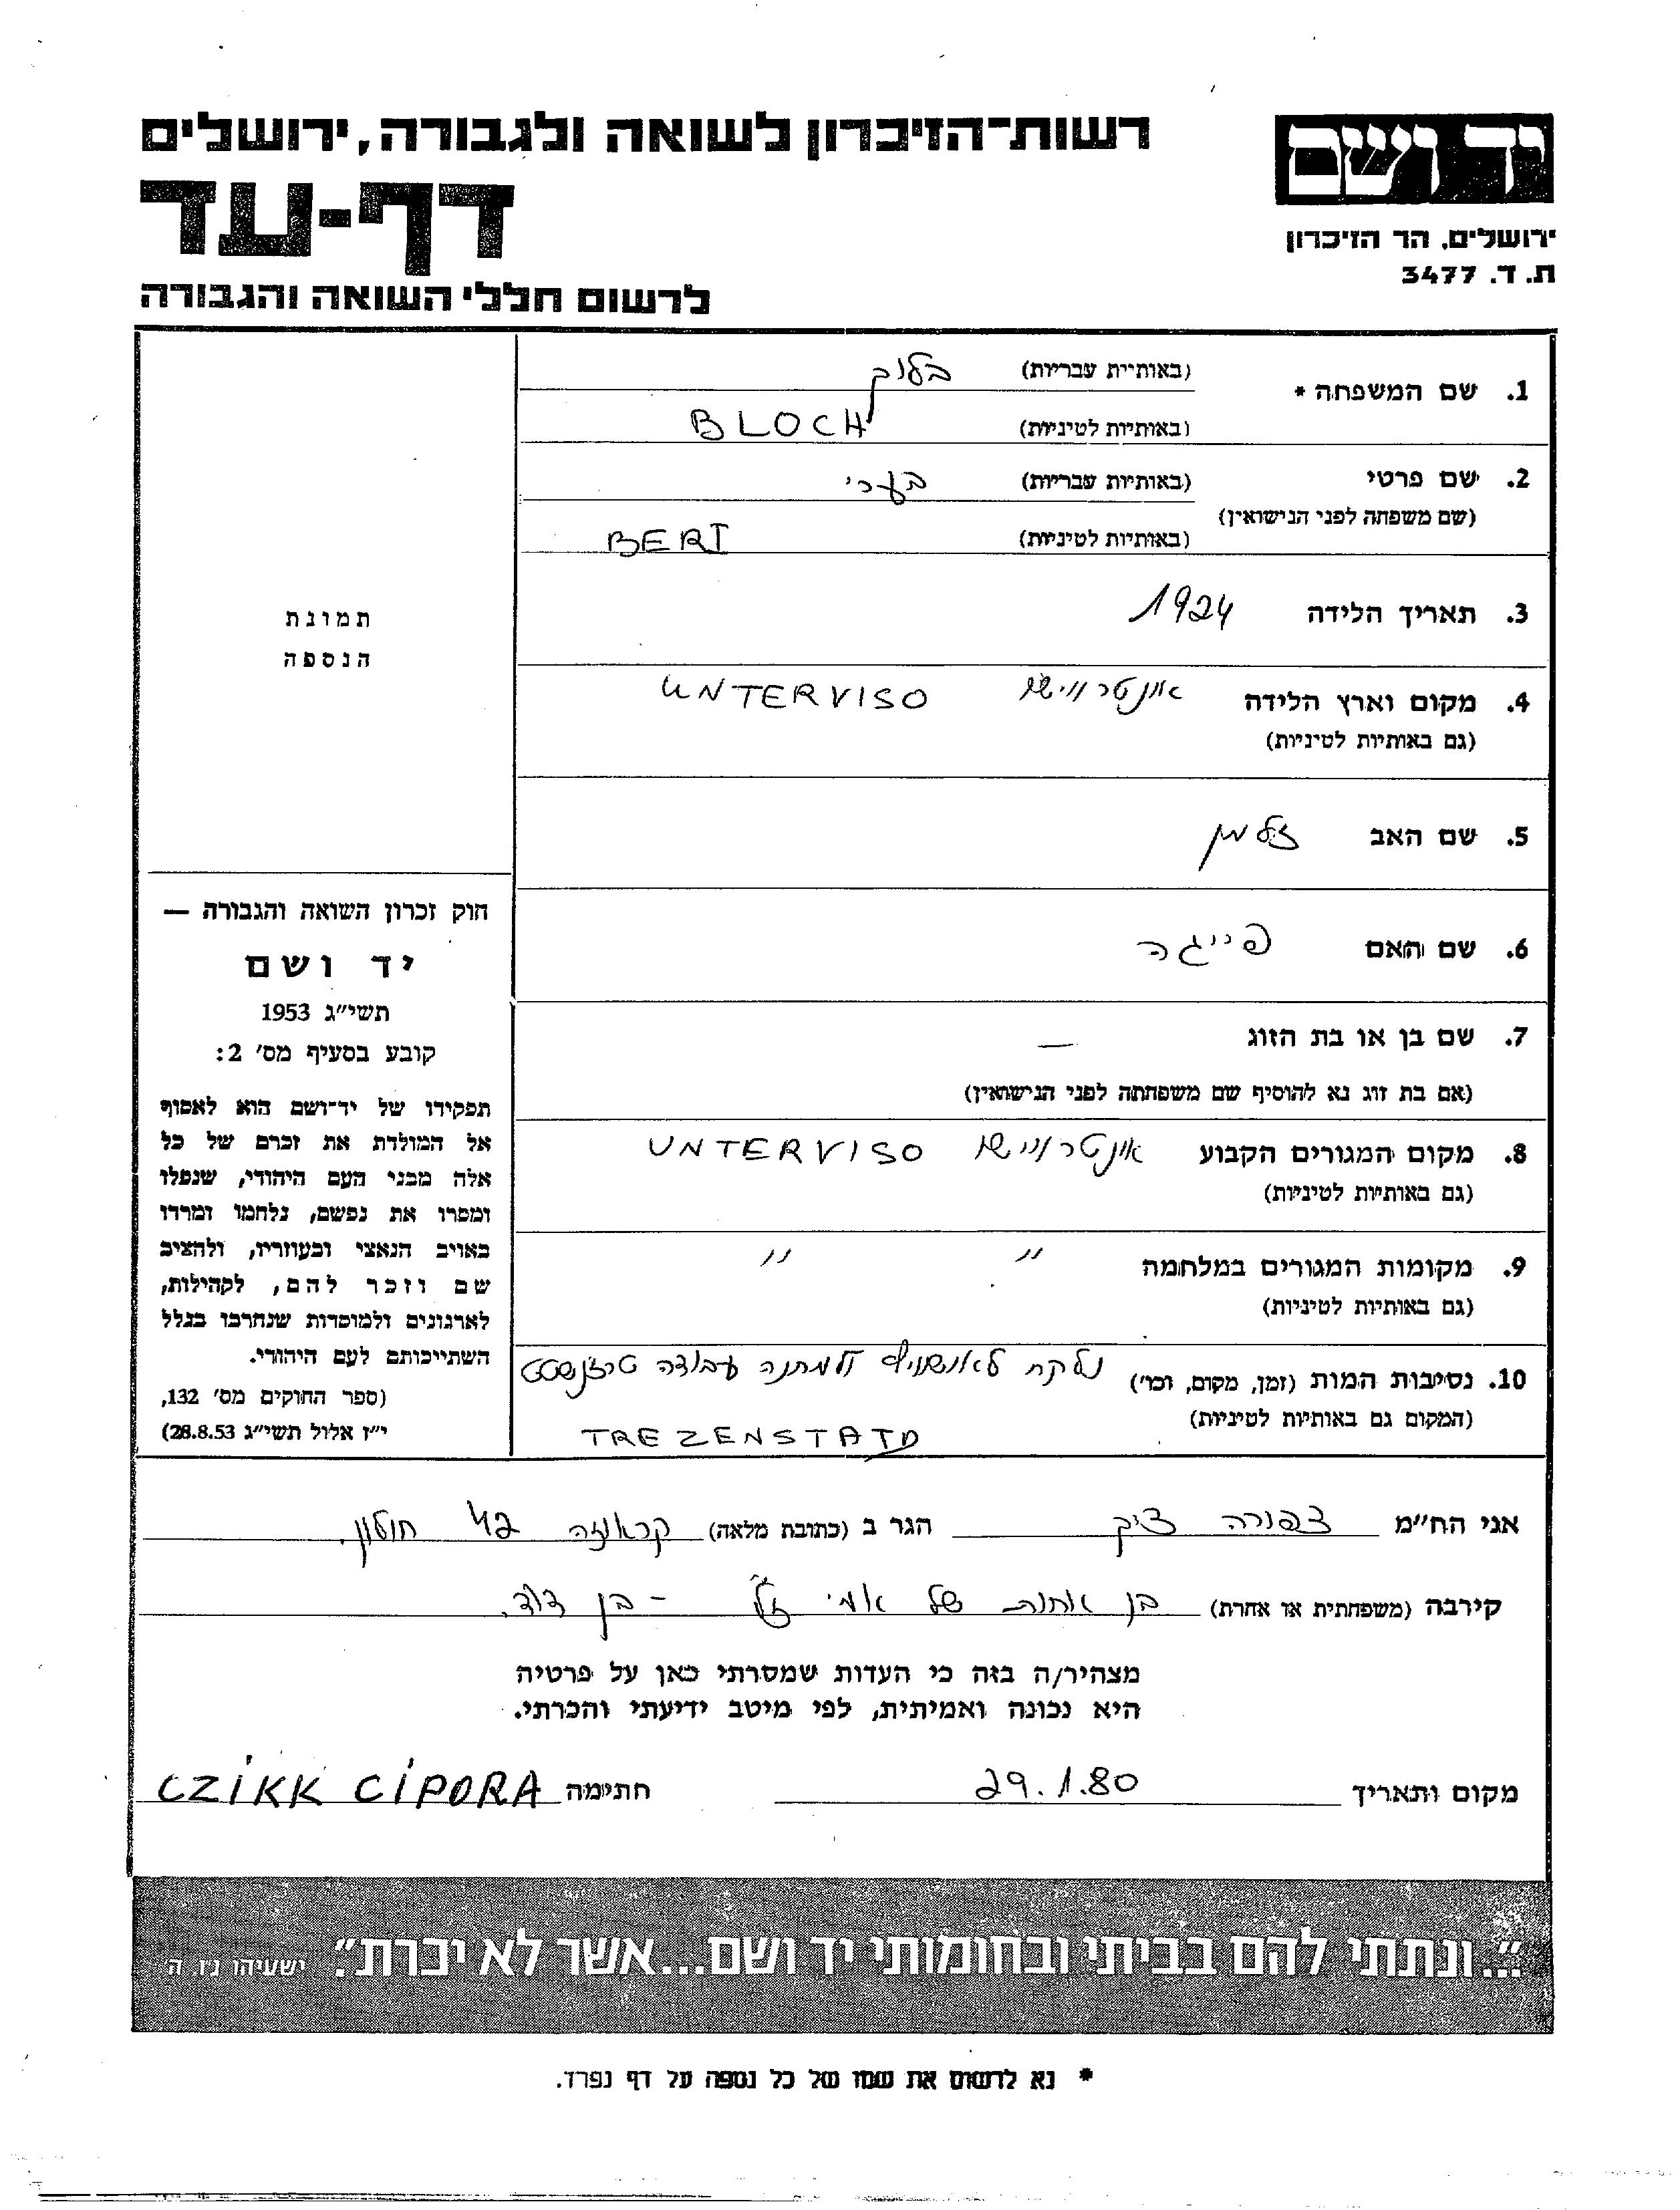 יד ושם
ירושלים, הר הזיכרון
ת. ד. 3477
רשות־הזיכרון לשואה ולגבורה, ירושלים
דף-עד
לרשום חללי השואה והגבורה
1. שם המשפחה * (באותיית עבריות) בלוך
(באותיות לטיניות) BLOCH
2. שם פרטי (באותיות עבריות) בערי
(שם משפחה לפני הנישואין)
(באותיות לטיניות) BERI
3. תאריך הלידה 1924
4. מקום וארץ הלידה אונטרווישו UNTERVISO
(גם באותיות לטיניות)
5. שם האב זלמן
6. שם האם פייגה
7. שם בן או בת הזוג —
(אם בת זוג נא להוסיף שם משפחתה לפני הנישואין)
8. מקום המגורים הקבוע אונטרווישו UNTERVISO
(גם באותיות לטיניות)
9. מקומות המגורים במלחמה " "
(גם באותיות לטיניות)
10. נסיבות המות (זמן, מקום, וכו') נלקח לאושוויץ ולמחנה עבודה טרזנשטט
(המקום גם באותיות לטיניות)
TREZENSTATD
תמונת
הנספה
חוק זכרון השואה והגבורה —
יד ושם
תשי"ג 1953
קובע בסעיף מס' 2:
תפקידו של יד־ושם הוא לאסוף
אל המולדת את זכרם של כל
אלה מבני העם היהודי, שנפלו
ומסרו את נפשם, נלחמו ומרדו
באויב הנאצי ובעוזריו, ולהציב
שם וזכר להם, לקהילות,
לארגונים ולמוסדות שנחרבו בגלל
השתייכותם לעם היהודי.
(ספר החוקים מס' 132,
י"ז אלול תשי"ג 28.8.53)
אני הח"מ צפורה ציק הגר ב (כתובת מלאה) קראוזה 42 חולון.
קירבה (משפחתית או אחרת) בן אחות של אמי ז"ל - בן דוד.
מצהיר/ה בזה כי העדות שמסרתי כאן על פרטיה
היא נכונה ואמיתית, לפי מיטב ידיעתי והכרתי.
מקום ותאריך 29.1.80 חתימה CZIKK CIPORA
"...ונתתי להם בביתי ובחומותי יד ושם...אשר לא יכרת". ישעיהו נ"ו, ה'
* נא לרשום את שמו של כל נספה על דף נפרד.